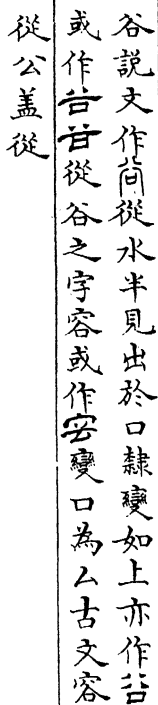 谷説文作㕣從水半見出於口隸變如上亦作㕣
或作𠔌甘從谷之字容或作㝐變口為厶古文容
從公盖從